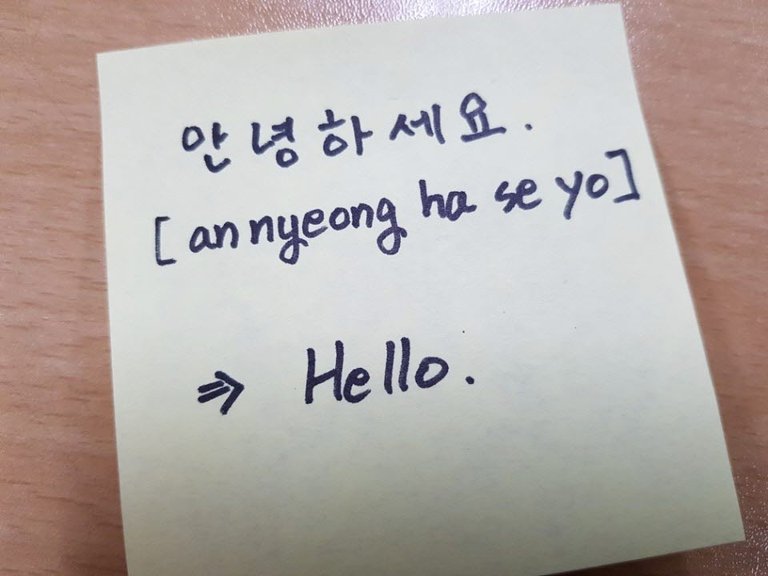 안녕하세요.
[annyeong ha se yo]
⇒ Hello.